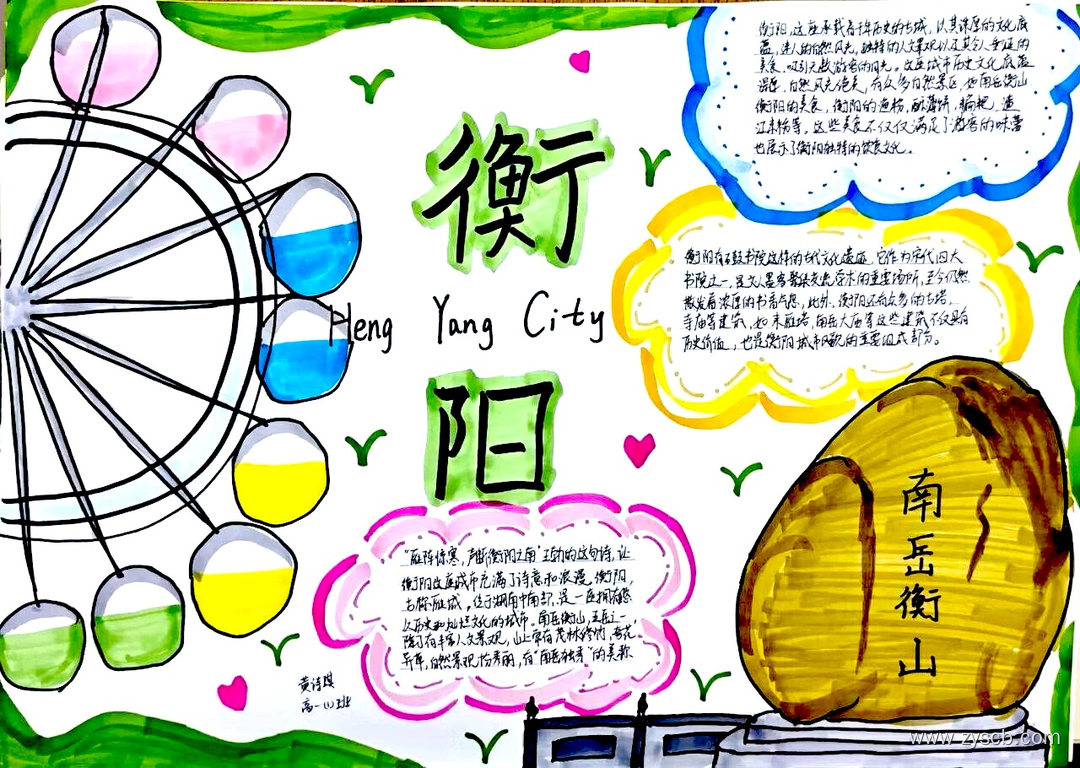 衡
阳
Heng Yang City
衡阳,这座承载着千年历史的古城,以其深厚的文化底
蕴,迷人的自然风光,独特的人文景观以及其令人垂涎的
美食,吸引无数游客的目光。这座城市历史文化底蕴
深厚,自然风光优美,有众多自然景区,如南岳衡山
衡阳的美食,衡阳的鱼粉,酥薄饼,
江米粉等,这些美食不仅仅满足了游客的味蕾
也展示了衡阳独特的饮食文化。
衡阳有石鼓书院这样的古代文化遗迹,它作为宋代四大
书院之一,是文人墨客聚集交流学术的重要场所,至今仍然
散发着浓厚的书香气息,此外,衡阳还有众多的古塔、
寺庙等建筑,如来雁塔,南岳大庙等这些建筑不仅具有
历史价值,也是衡阳城市风貌的重要组成部分。
"雁阵惊寒,声断衡阳之浦"王勃的这句诗,让
衡阳这座城市充满了诗意和浪漫,衡阳,
古称雁城。位于湖南中南部,是一座拥有悠
久历史和灿烂文化的城市。南岳衡山,五岳之一
除了有丰富人文景观,山上常有茂林修竹,奇花
异草,自然景观也秀丽,有"南岳独秀"的美称
南岳衡山
黄诗琪
高一(1)班
www.zyscb.com